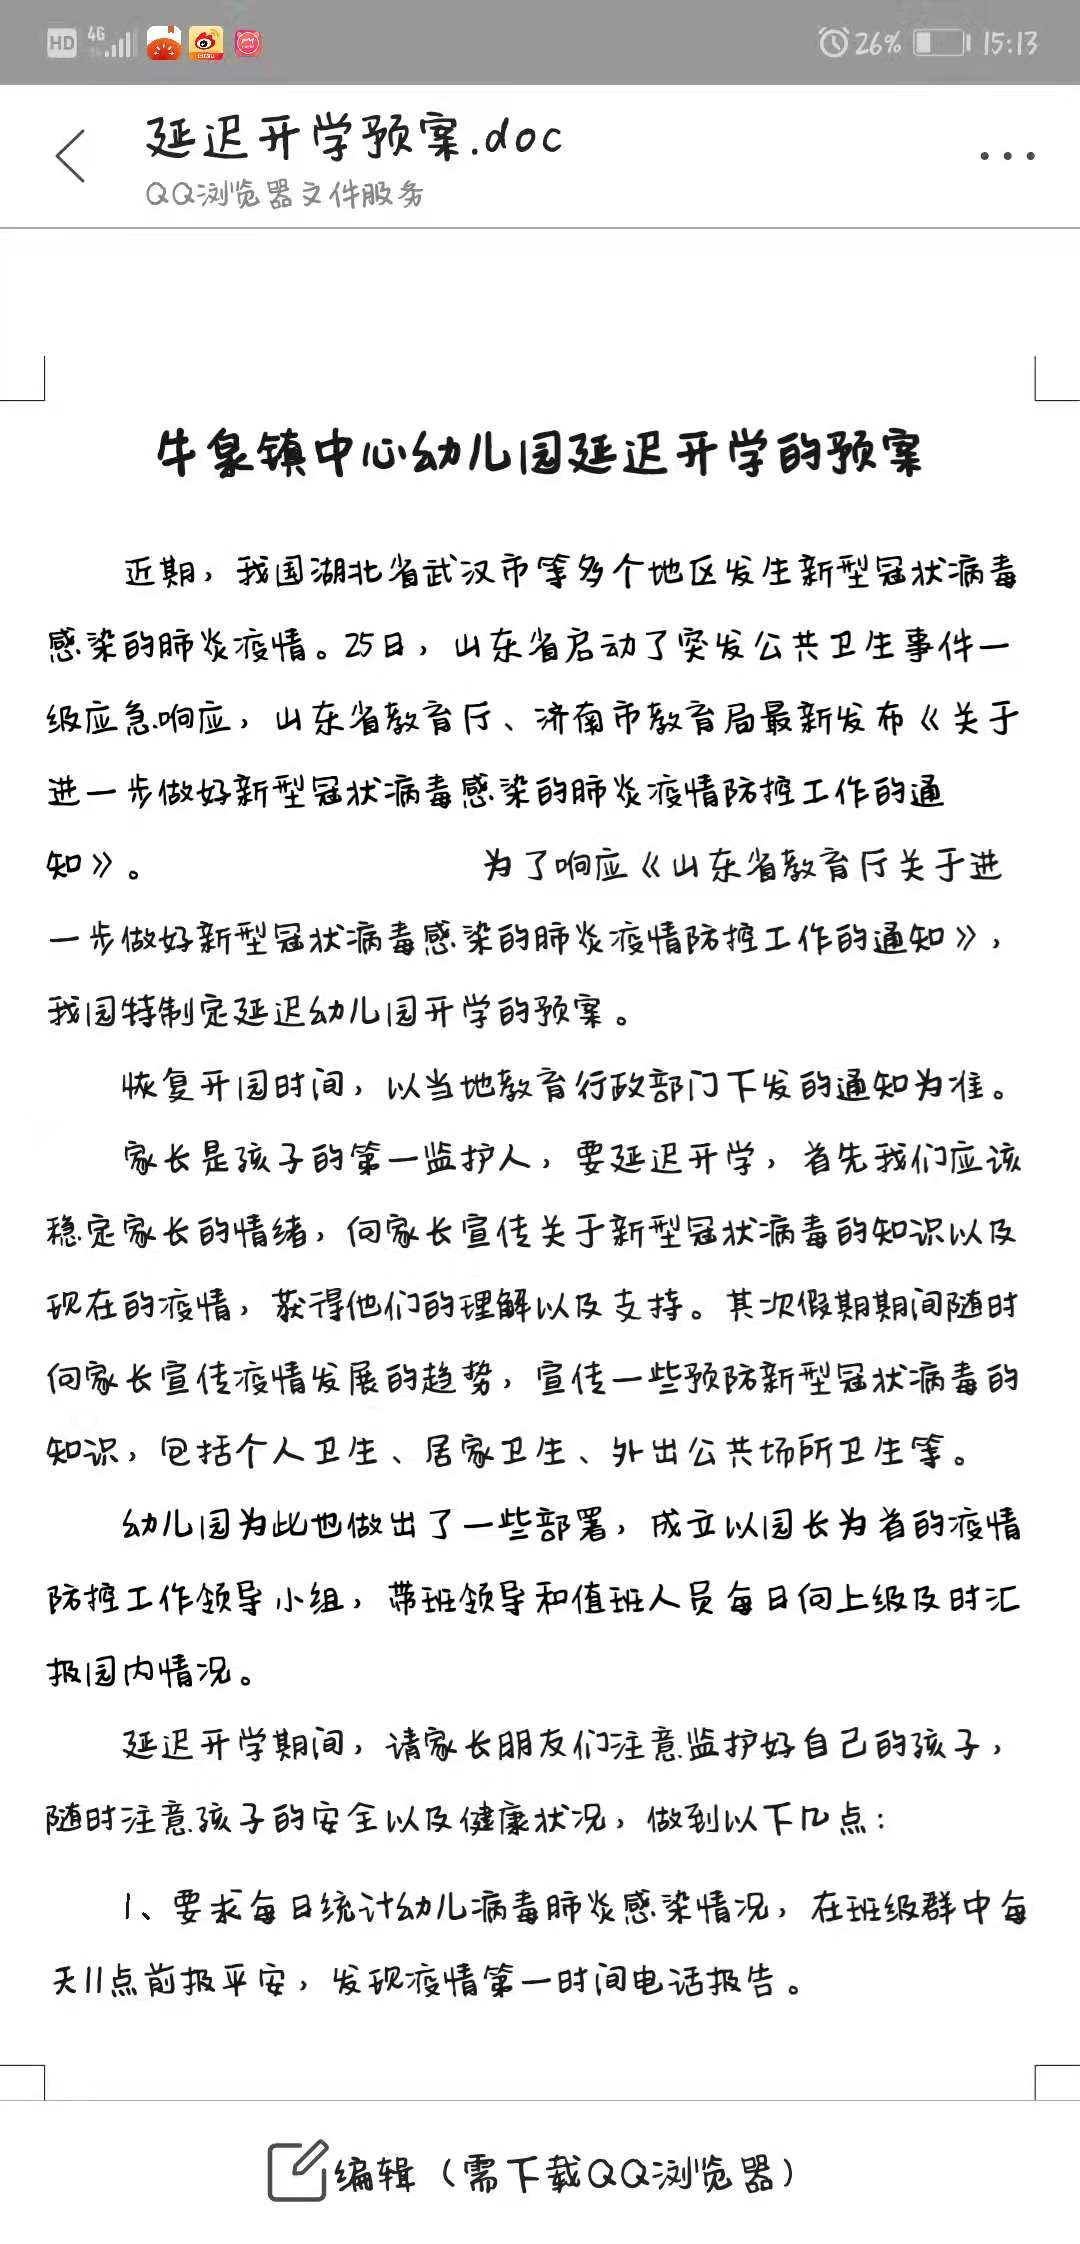 HD 4G 26% 15:13
延迟开学预案.doc
QQ浏览器文件服务
牛泉镇中心幼儿园延迟开学的预案
近期，我国湖北省武汉市等多个地区发生新型冠状病毒
感染的肺炎疫情。25日，山东省启动了突发公共卫生事件一
级应急响应，山东省教育厅、济南市教育局最新发布《关于
进一步做好新型冠状病毒感染的肺炎疫情防控工作的通
知》。 为了响应《山东省教育厅关于进
一步做好新型冠状病毒感染的肺炎疫情防控工作的通知》，
我园特制定延迟幼儿园开学的预案。
恢复开园时间，以当地教育行政部门下发的通知为准。
家长是孩子的第一监护人，要延迟开学，首先我们应该
稳定家长的情绪，向家长宣传关于新型冠状病毒的知识以及
现在的疫情，获得他们的理解以及支持。其次假期期间随时
向家长宣传疫情发展的趋势，宣传一些预防新型冠状病毒的
知识，包括个人卫生、居家卫生、外出公共场所卫生等。
幼儿园为此也做出了一些部署，成立以园长为首的疫情
防控工作领导小组，带班领导和值班人员每日向上级及时汇
报园内情况。
延迟开学期间，请家长朋友们注意监护好自己的孩子，
随时注意孩子的安全以及健康状况，做到以下几点：
1、要求每日统计幼儿病毒肺炎感染情况，在班级群中每
天11点前报平安，发现疫情第一时间电话报告。
编辑（需下载QQ浏览器）